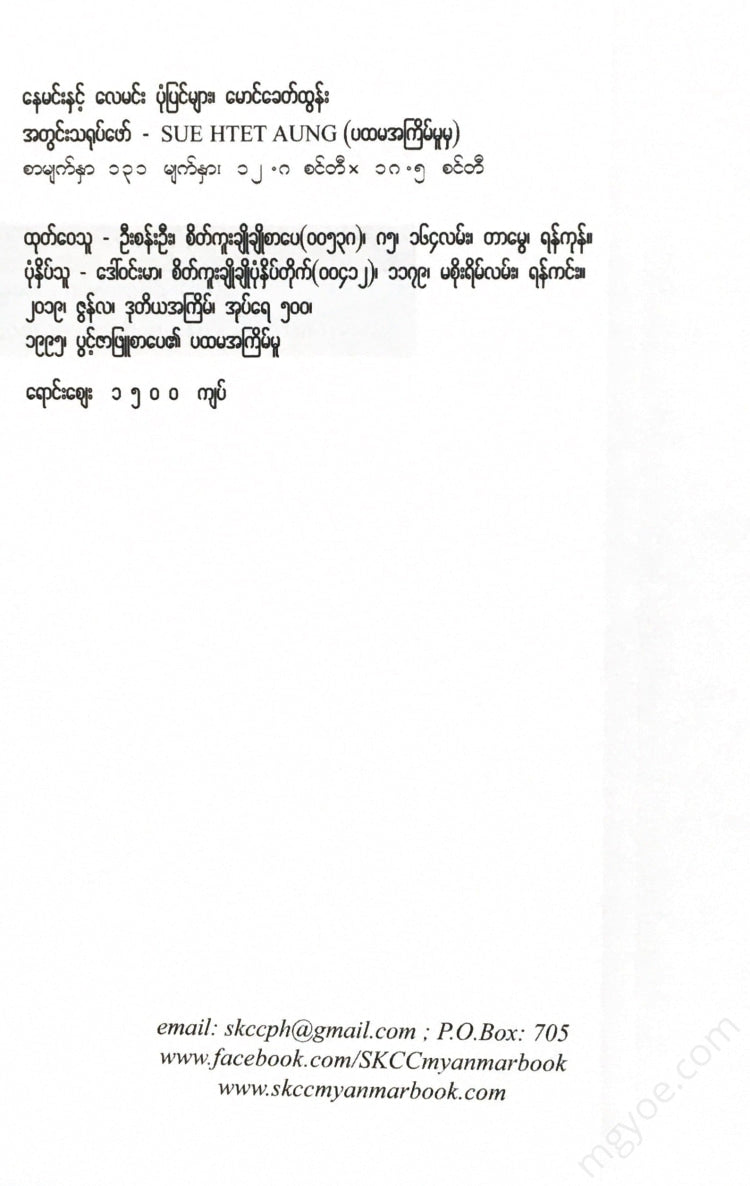 နေမင်းနှင့် လေမင်း ပုံပြင်များ၊ မောင်ခေတ်ထွန်း
အတွင်းသရုပ်ဖော် - SUE HTET AUNG (ပထမအကြိမ်မူမှ)
စာမျက်နှာ ၁၃၁ မျက်နှာ၊ ၁၂.ဂ စင်တီ× ၁ဂ.၅ စင်တီ
ထုတ်ဝေသူ - ဦးစန်းဦး၊ စိတ်ကူးချိုချိုစာပေ(၀၀၅၃ဂ)၊ ဂ၅၊ ၁၆၄လမ်း၊ တာမွေ၊ ရန်ကုန်။
ပုံနှိပ်သူ - ဒေါ်ဝင်းမာ၊ စိတ်ကူးချိုချိုပုံနှိပ်တိုက်(၀၀၄၁၂)၊ ၁၁၇၉၊ မစိုးရိမ်လမ်း၊ ရန်ကင်း။
၂၀၁၉၊ ဇွန်လ၊ ဒုတိယအကြိမ်၊ အုပ်ရေ ၅၀၀၊
၁၉၉၅၊ ပွင့်ဇာဖြူစာပေ၏ ပထမအကြိမ်မူ
ရောင်းဈေး ၁ ၅ ၀ ၀ ကျပ်
email: skccph@gmail.com ; P.O.Box: 705
www.facebook.com/SKCCmyanmarbook
www.skccmyanmarbook.com
mgyoe.com